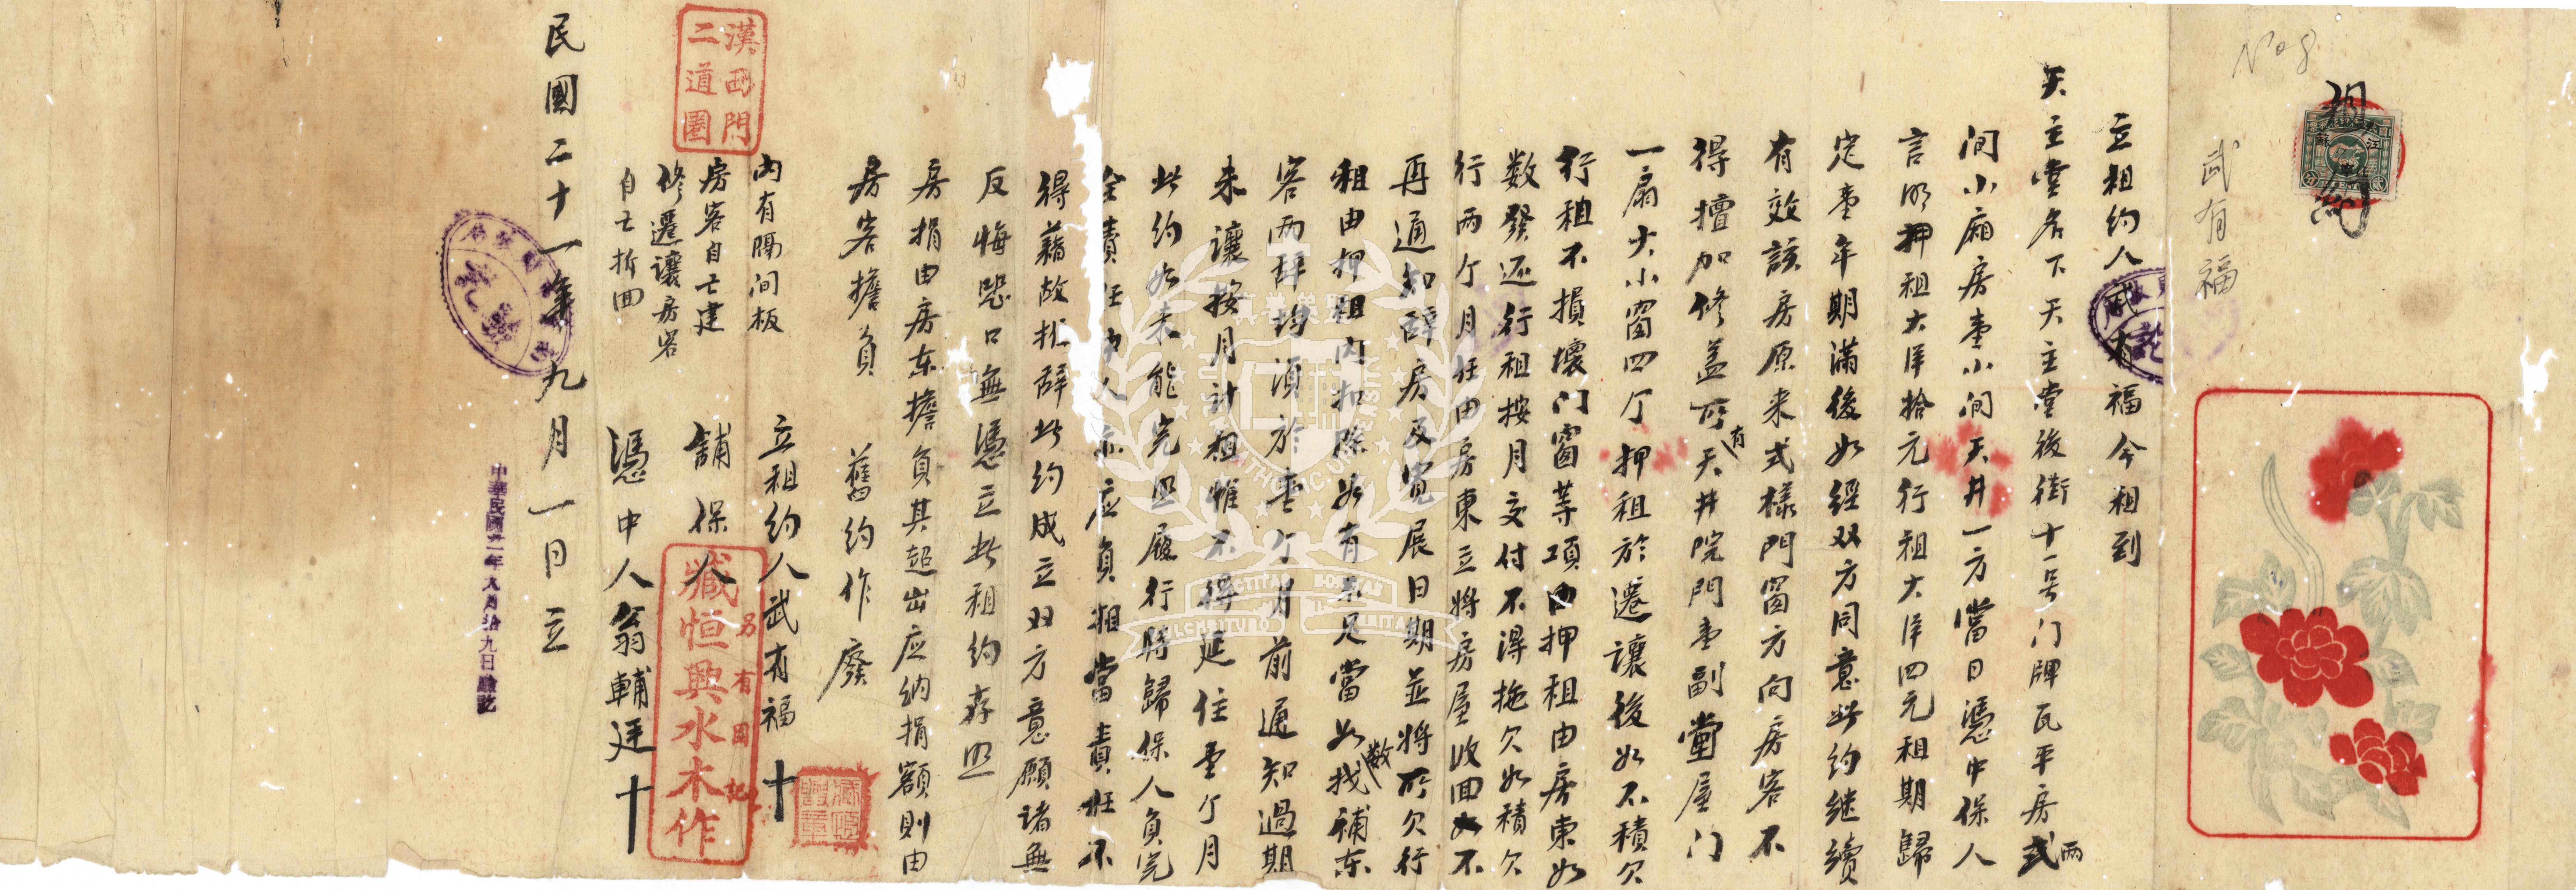 No 8
租約
武有福
立租約人武有福今租到
天主堂名下天主堂後街十一号门牌瓦平房弍两
间小廂房壹小间天井一方當日憑中保人
言明押租大洋拾元行租大洋四元租期歸
定壹年期滿後如經双方同意此約继續
有效該房原来式樣門窗方向房客不
得擅加修盖所有天井院門壹副堂屋门
一扇大小窗四个押租於遷讓後如不積欠
行租不損壞门窗等項由押租由房東如
数發还行租按月交付不得拖欠如積欠
行两个月任由房東立將房屋收回不
再通知辞房及寬展日期並將所欠行
租由押租内扣除如有不足當如数找補东
客两辞均須於壹个月前通知過期
未讓按月计租惟不得延住壹个月
此約如未能完皿履行時歸保人負完
全責任中人亦应負相當責任不
得藉故推辞此約成立双方意願诸無
反悔恐口無憑立此租約存照
房捐由房东擔負其超出应纳捐額則由
房客擔負 舊約作廢
内有隔间板
房客自己建
修遷讓房客
自己拆回
立租約人武有福 十
舖保人
臧恒興水木作
另有圖記
憑中人翁輔廷 十
漢西門
二道圈
民國二十一年九月一日立
中華民國廿一年九月拾九日驗訖